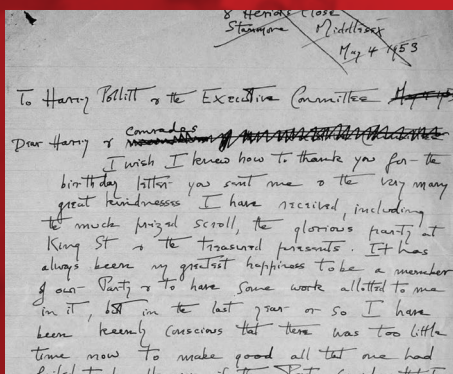 8 Heriots Close
Stanmore Middlesex
May 4 1953
To Harry Pollitt & the Executive Committee
Dear Harry & comrades
I wish I knew how to thank you for the
birthday letter you sent me & the very many
great kindnesses I have received, including
the much prized scroll, the glorious party at
King St & the treasured presents. It has
always been my greatest happiness to be a member
of our Party & to have some work allotted to me
in it, but in the last year or so I have
been keenly conscious that there was too little
time now to make good all that one had